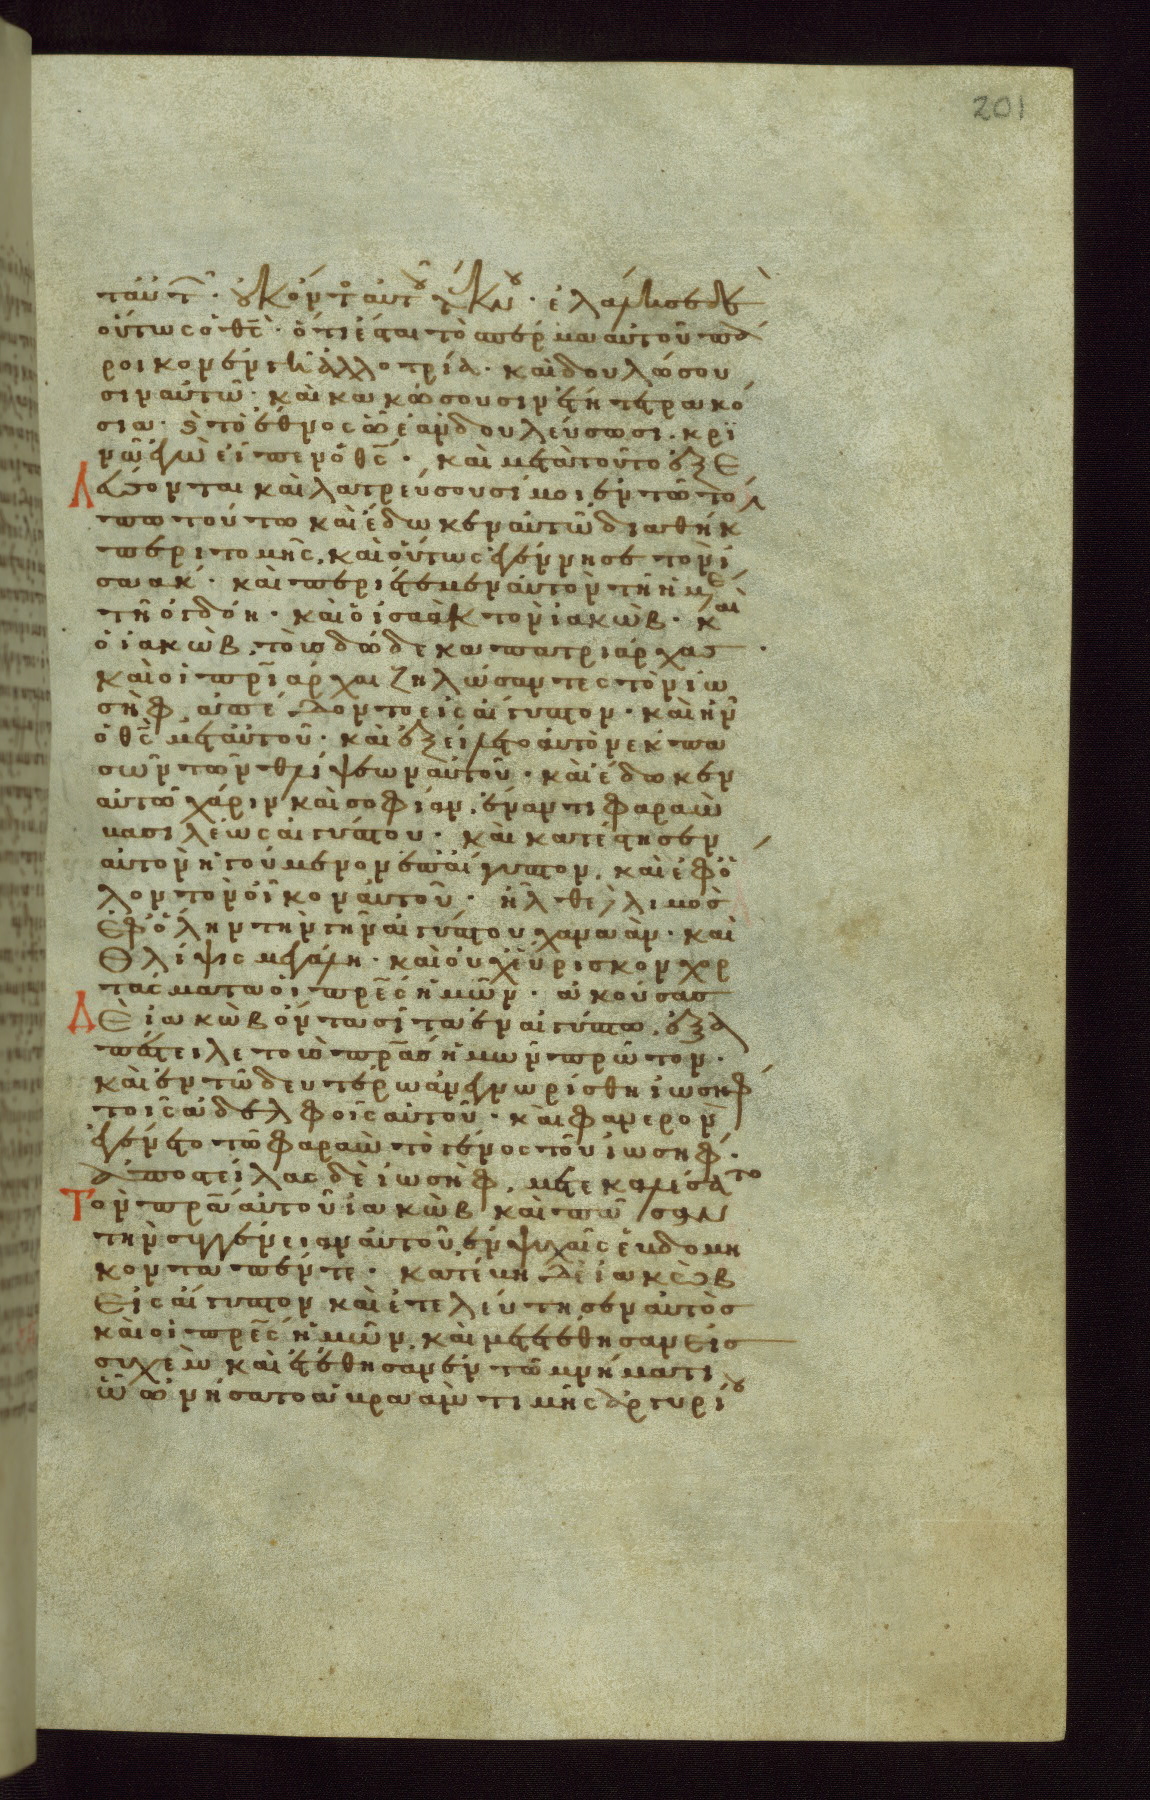 201
ταύτ · οὐκ όντ αυτ τέκν · ἐλάλησε δὲ
οὕτως ὁ θς · ὅτι ἔσται τὸ σπέρμα αὐτοῦ πά
ροικον ἐν γῆ ἀλλοτρία · καὶ δουλώσου
σιν αὐτῶ · καὶ κακώσουσιν ἔτη τετρακό
σια · καὶ τὸ ἔθνος ὧ ἐὰν δουλεύσωσι · κρι
νῶ ἐγὼ εἶπεν ὁ θς · καὶ μετὰ τοῦτο ἐξε
λεύσονται καὶ λατρεύσουσί μοι ἐν τῶ τό
πω τούτω καὶ ἔδωκεν αὐτῶ διαθήκ
περιτομῆς · καὶ οὕτως ἐγέννησε τὸν ἰ
σαάκ · καὶ περιέτεμεν αὐτὸν τῆ ἡμέ
τῆ ὀγδόη · καὶ ὁ ἰσαὰκ τὸν ἰακώβ · καὶ
ὁ ἰακὼβ τοὺς δώδεκα πατριάρχας ·
καὶ οἱ πρίάρχαι ζηλώσαντες τὸν ἰω
σὴφ ἀπέδοντο εἰς αἴγυπτον · καὶ ἦν
ὁ θς μετ αὐτοῦ · καὶ ἐξείλετο αὐτὸν ἐκ πα
σῶν τῶν θλίψεων αὐτοῦ · καὶ ἔδωκεν
αὐτῶ χάριν καὶ σοφίαν ἐναντι φαραὼ
βασιλέως αἰγύπτου · καὶ κατέστησεν
αὐτὸν ἡγούμενον ἐπ αἴγυπτον · καὶ ἐφ ὅ
λον τὸν οἶκον αὐτοῦ · ἦλθε λιμὸς
ἐφ ὅλην τὴν γῆν αἰγύπτου χαναάν · καὶ
θλίψις μεγάλη · καὶ οὐχ εὕρισκον χορ
τάσματα οἱ πρες ἡμῶν · ἀκούσας
δὲ ἰακὼβ ὄντα σῖτα ἐν αἰγύπτω · ἐξα
πέστειλε τοὺς πρας ἡμῶν πρῶτον ·
καὶ ἐν τῶ δευτέρω ἀνεγνωρίσθη ἰωσὴφ
τοῖς ἀδελφοῖς αὐτοῦ · καὶ φανερὸν
ἐγένετο τῶ φαραὼ τὸ γένος τοῦ ἰωσήφ ·
ἀποστείλας δὲ ἰωσὴφ, μετεκαλέσατο
τὸν πρα αὐτοῦ ἰακὼβ καὶ πᾶσαν
τὴν συγγένειαν αὐτοῦ ἐν ψυχαῖς ἑβδομή
κοντα πέντε · κατέβη δὲ ἰακὼβ
εἰς αἴγυπτον καὶ ἐτελεύτησεν αὐτὸς
καὶ οἱ πρες ἡμῶν, καὶ μετετέθησαν εἰς
συχὲμ καὶ ἐτέθησαν ἐν τῶ μνήματι
ὧ ὠνήσατο ἀβραὰμ τιμῆς ἀργυρίου